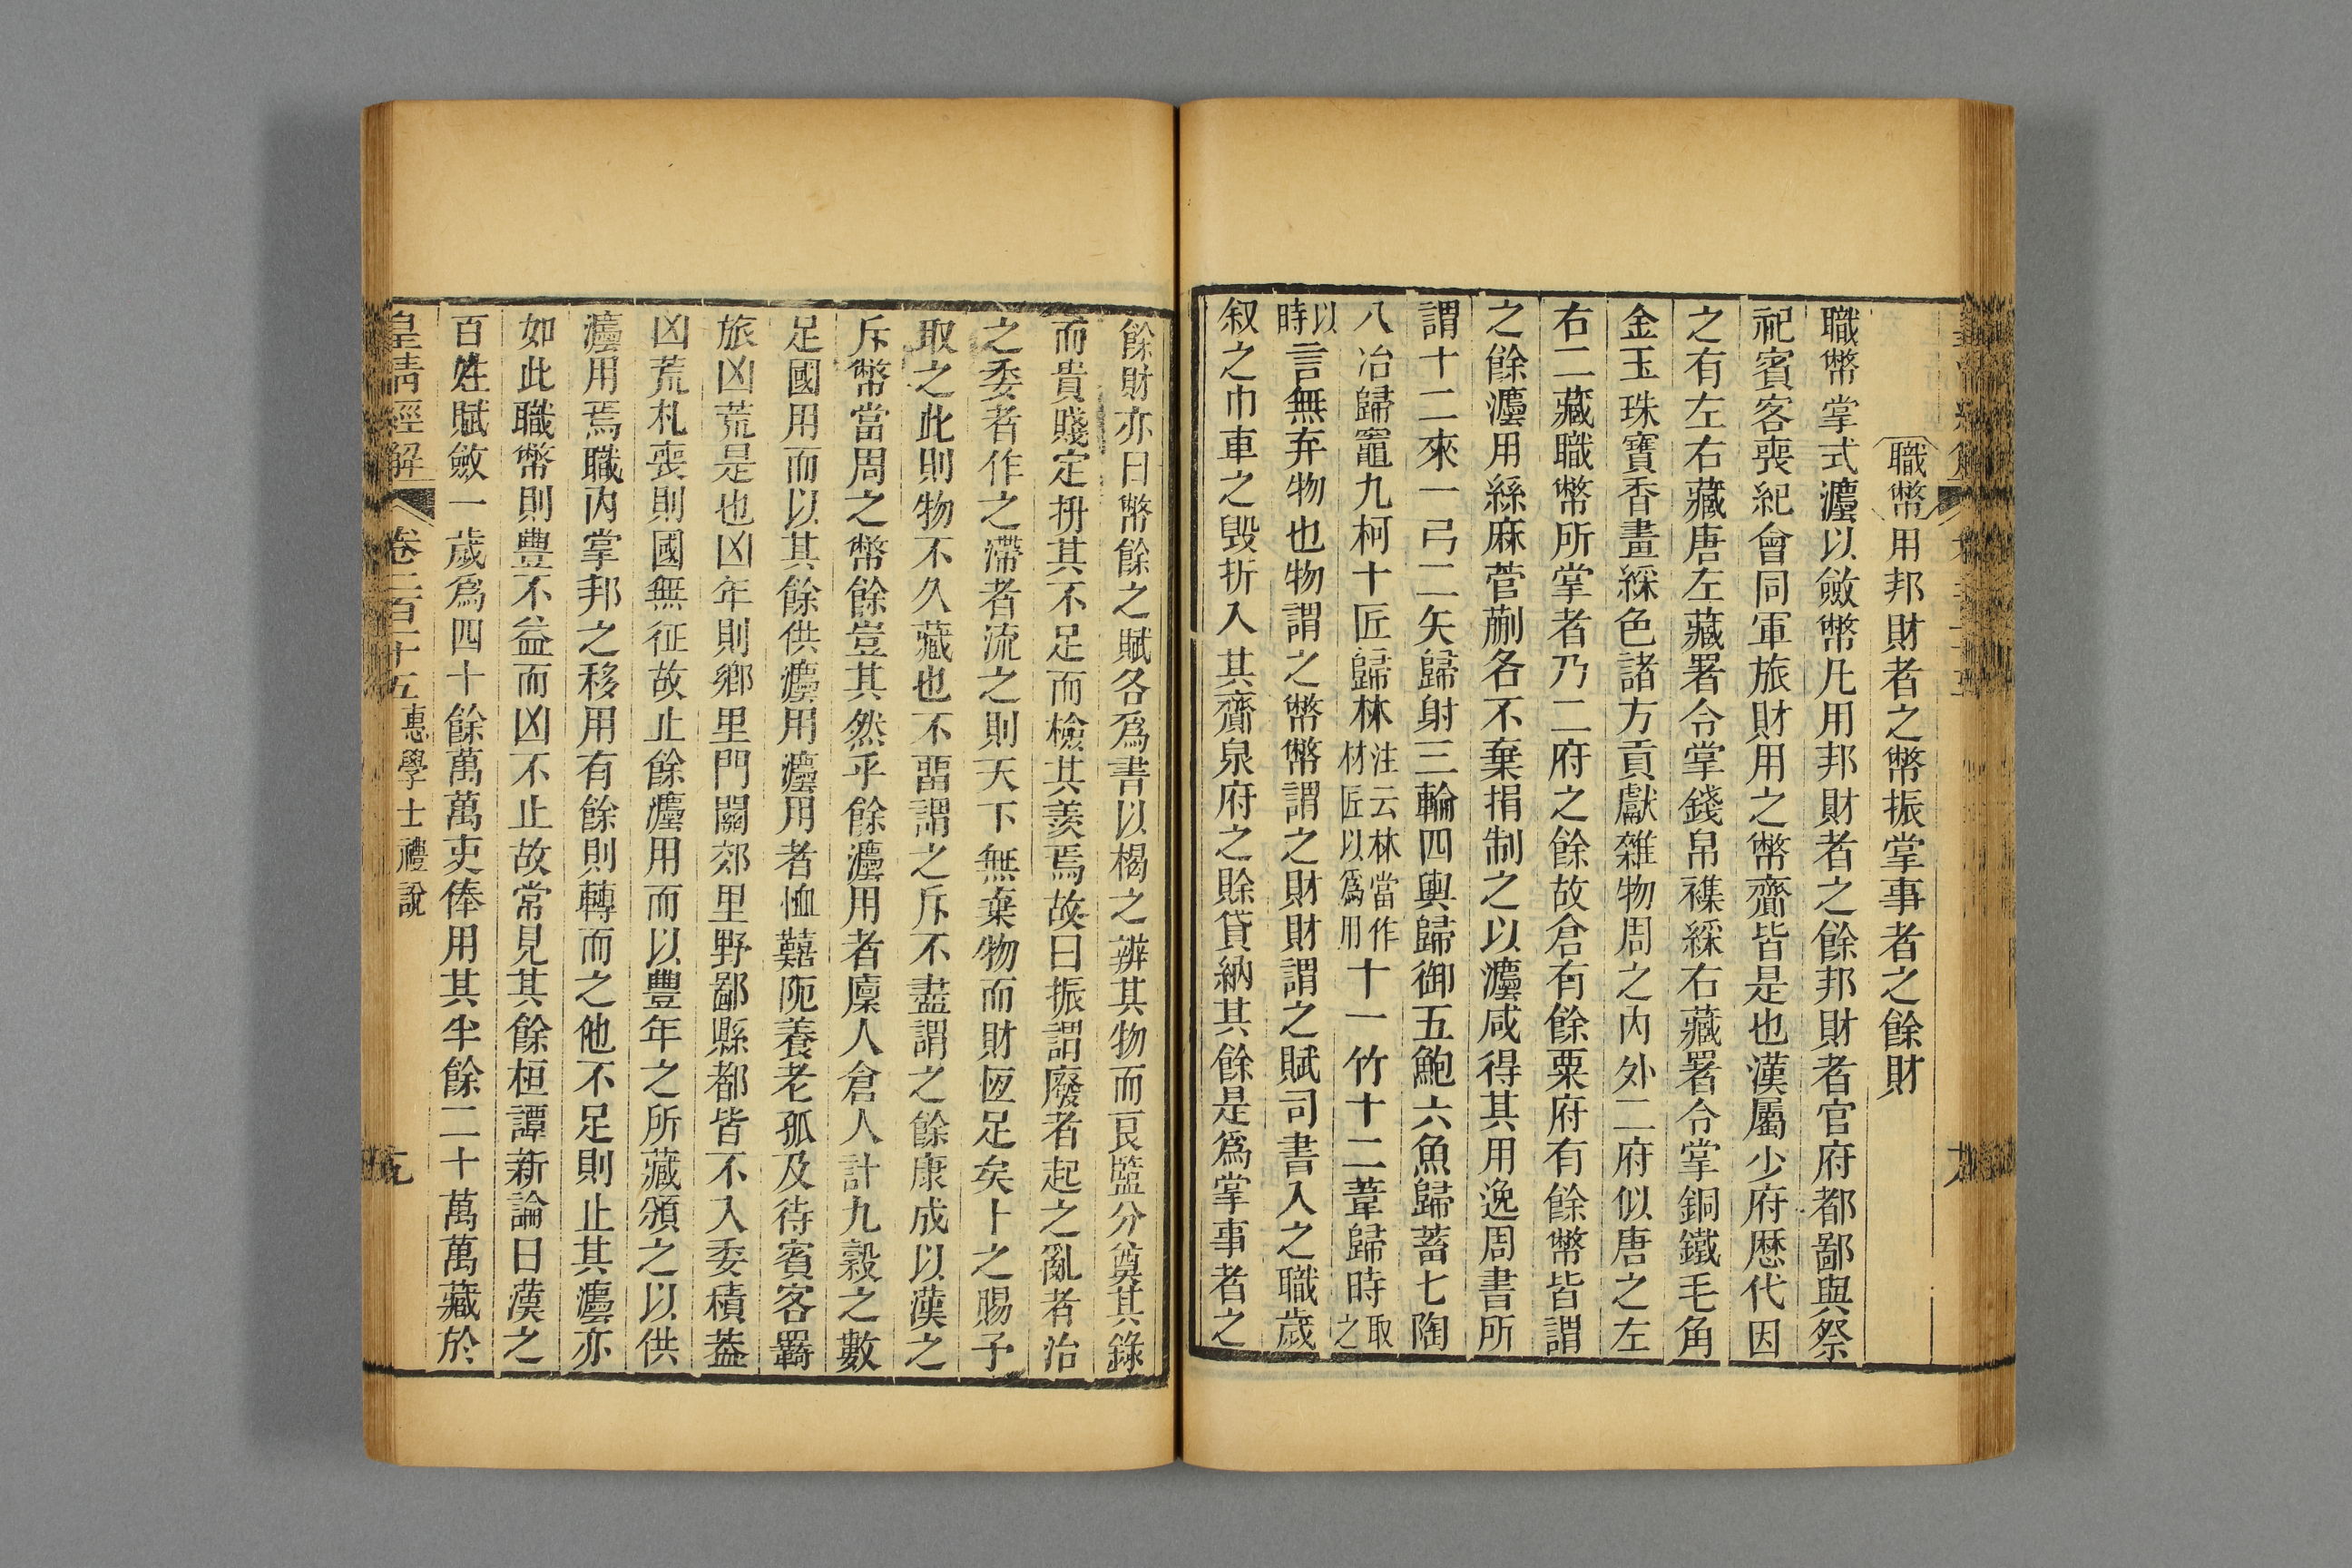 職幣用邦財者之幣振掌事者之餘財
職幣掌式灋以斂幣凡用邦財者之餘邦財者官府都鄙與祭
祀賓客喪紀會同軍旅財用之幣齎皆是也漢屬少府歷代因
之有左右藏唐左藏署令掌錢帛襍綵右藏署令掌銅鐵毛角
金玉珠寶香畫綵色諸方貢獻雜物周之内外二府似唐之左
右二藏職幣所掌者乃二府之餘故倉有餘粟府有餘幣皆謂
之餘灋用絲麻菅蒯各不棄捐制之以灋咸得其用逸周書所
謂十二來一弓二矢歸射三輪四輿歸御五鮑六魚歸蓄七陶
八冶歸竈九柯十匠歸林注云林當作材匠以爲用十一竹十二葦歸時取之
以時言無弃物也物謂之幣幣謂之財財謂之賦司書入之職歲
叙之巾車之毀折入其齎泉府之賖貸納其餘是爲掌事者之
餘財亦曰幣餘之賦各爲書以楬之辨其物而良盬分奠其錄
而貴賤定抍其不足而檢其羨焉故曰振謂廢者起之亂者治
之委者作之滯者流之則天下無棄物而財恆足矣上之賜予
取之此則物不久藏也不畱謂之斥不盡謂之餘康成以漢之
斥幣當周之幣餘豈其然乎餘灋用者廩人倉人計九穀之數
足國用而以其餘供灋用灋用者恤囏阨養老孤及待賓客羇
旅凶荒是也凶年則鄉里門關郊里野鄙縣都皆不入委積葢
凶荒札喪則國無征故止餘灋用而以豐年之所藏頒之以供
灋用焉職内掌邦之移用有餘則轉而之他不足則止其灋亦
如此職幣則豐不益而凶不止故常見其餘桓譚新論曰漢之
百姓賦斂一歲爲四十餘萬萬吏俸用其半餘二十萬萬藏於
皇清經解 卷二百十五 惠學士禮說